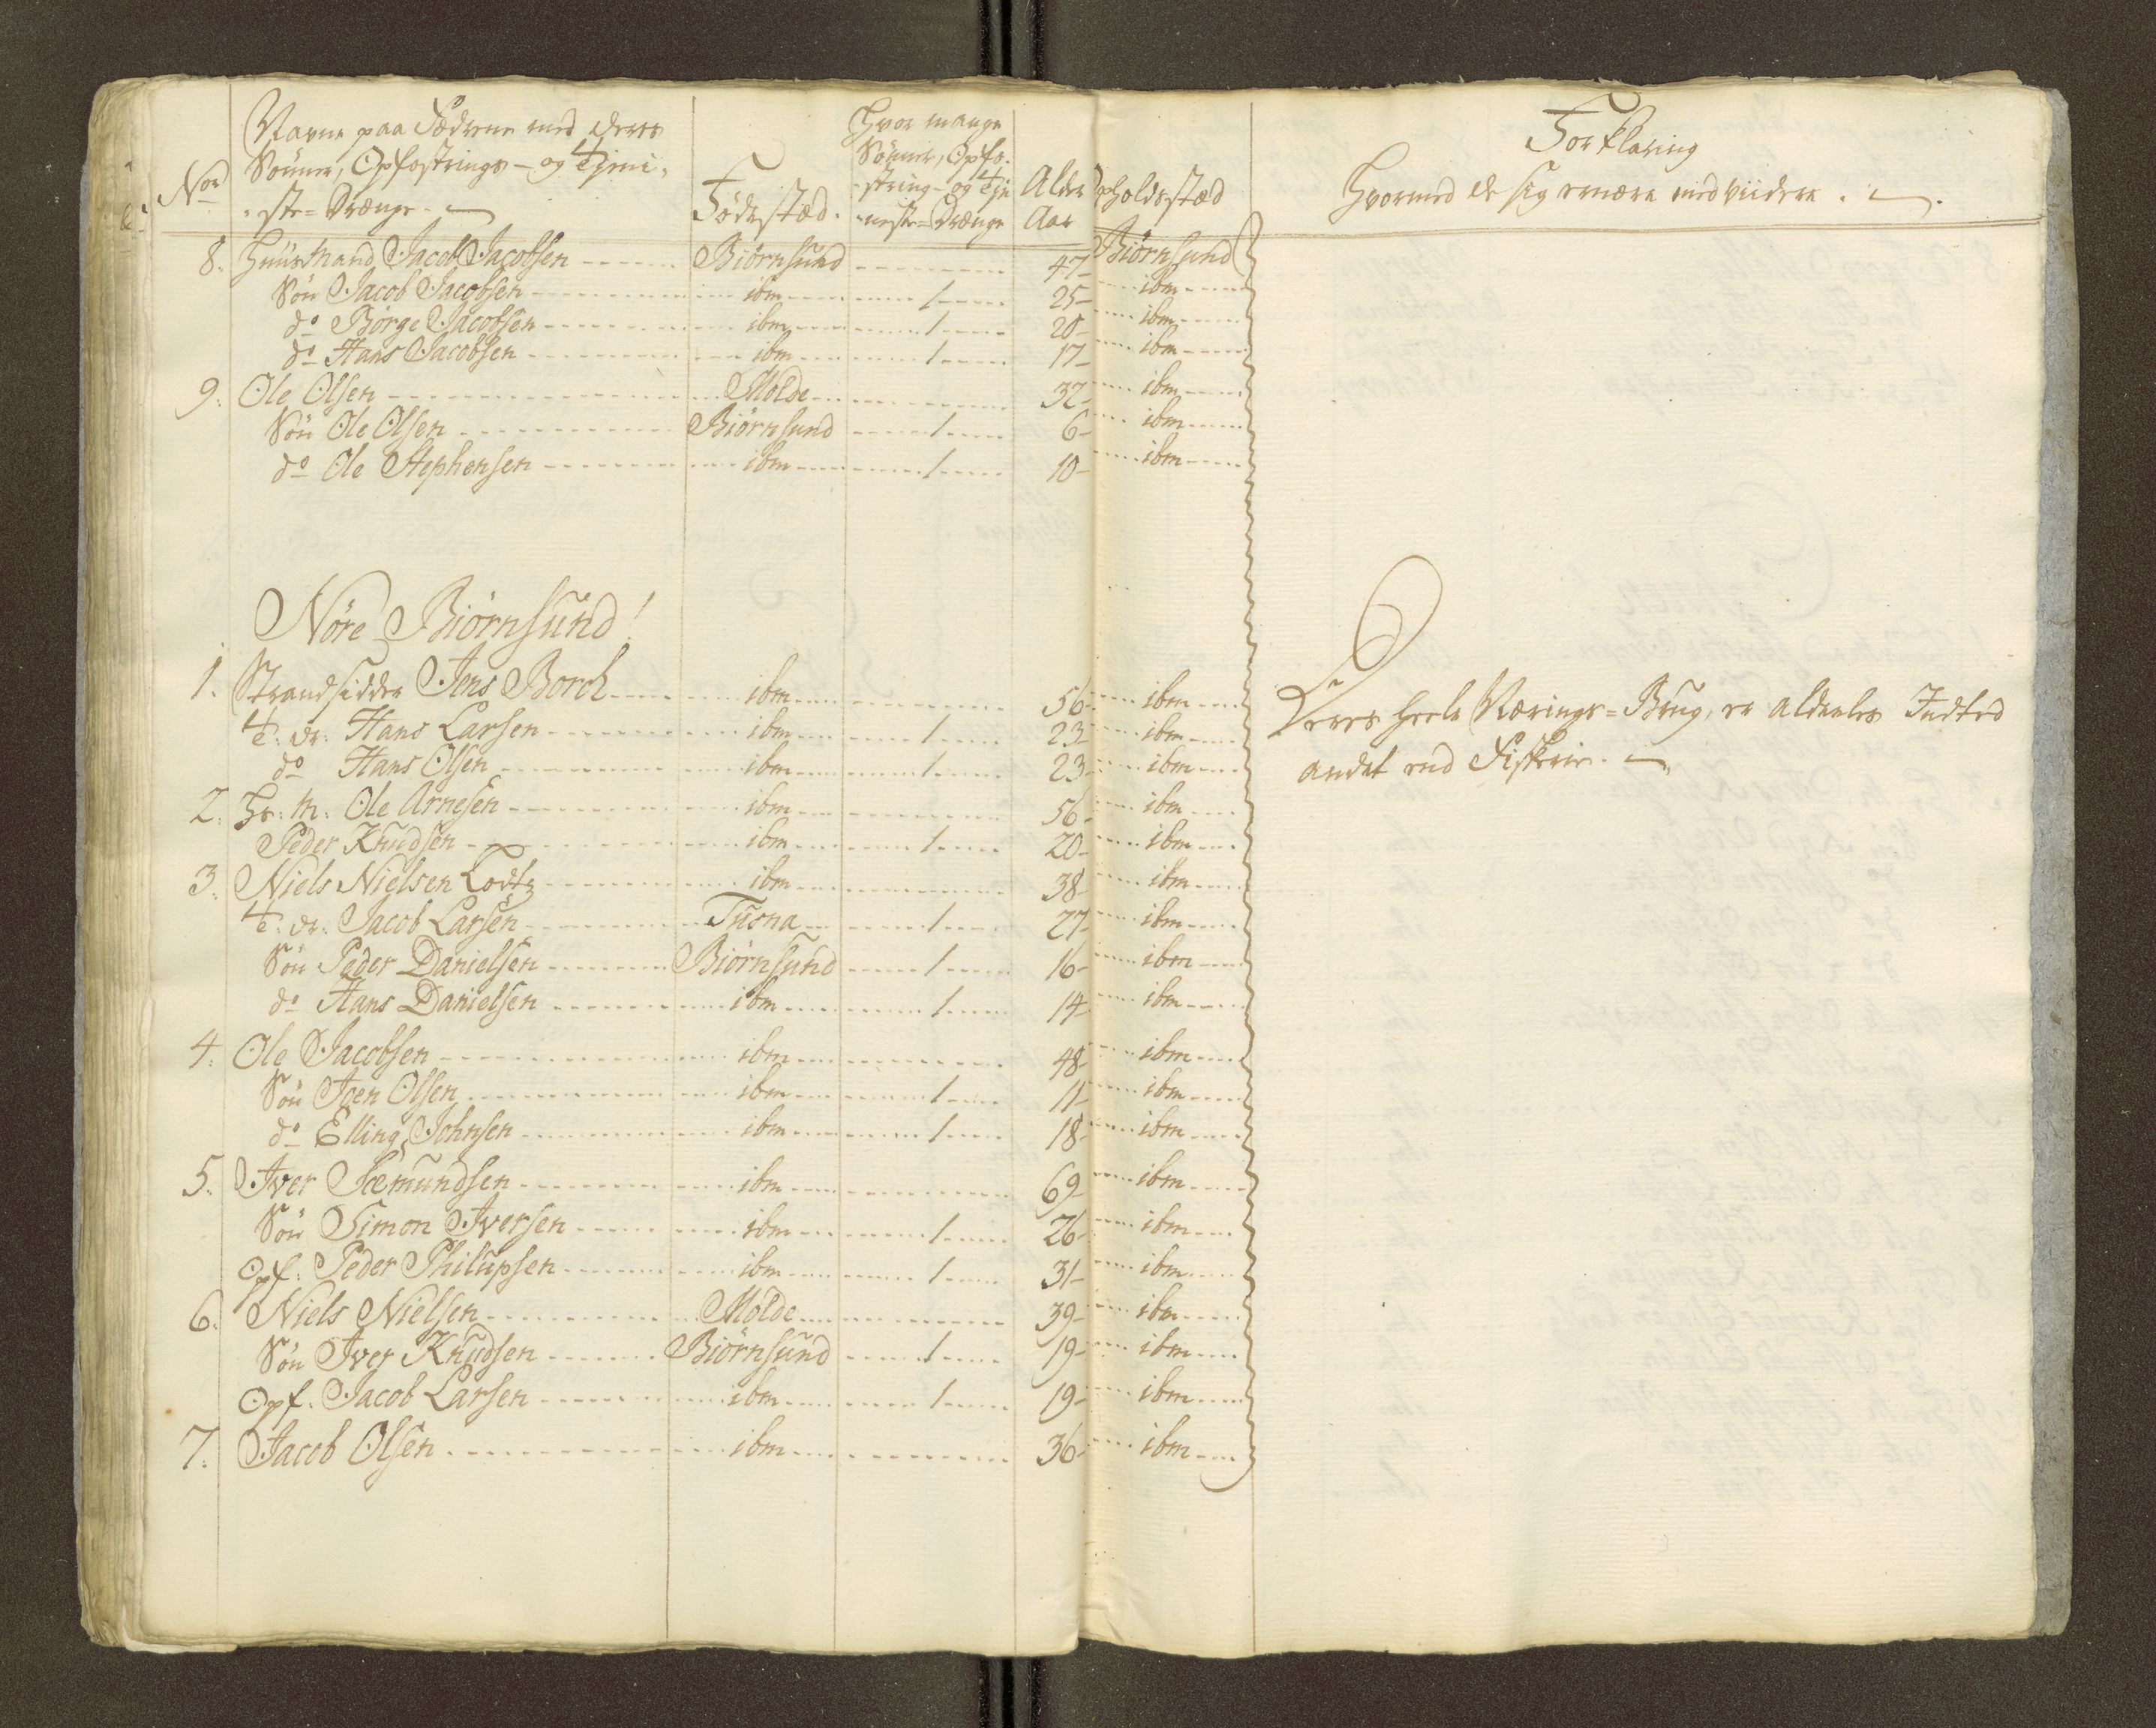 No
Navne paa Fædrene med deres
Sönner, Opfostrings- og Tjeni-
ste-Drænge.
Födestæd.
Hvor mange
Sönner, Opfo-
string- og Tje-
neste-Drænge
Alder
Aar
opholdsstæd
Forklaring
Hvormed de sig ernære med viidere.
8. Huusmand Jacob Jacobsen Biörnsund 47 Biörnsund
Sön Jacob Jacobsen ibm 1 25 ibm
do Börge Jacobsen ibm 1 20 ibm
do Hans Jacobsen ibm 1 17 ibm
9. Ole Olsen Molde 32 ibm
Sön Ole Olsen Biörnsund 1 6 ibm
do Ole Stephensen ibm 1 10 ibm
Nöre Biörnsund
1. Strandsidder Jens Borch ibm 56 ibm
T: dr: Hans Larsen ibm 1 23 ibm
do Hans Olsen ibm 1 23 ibm
2. Hs: m: Ole Arnesen ibm 56 ibm
Peder Knudsen ibm 1 20 ibm
3. Niels Nielsen Lodtz ibm 38 ibm
T: dr: Jacob Larsen Tusna 1 27 ibm
Sön Peder Danielsen Biörnsund 1 16 ibm
do Hans Danielsen ibm 1 14 ibm
4. Ole Jacobsen ibm 48 ibm
Sön Joen Olsen ibm 1 11 ibm
do Elling Johnsen ibm 1 18 ibm
5. Iver Sæmundsen ibm 69 ibm
Sön Simon Iversen ibm 1 26 ibm
Opf: Peder Philupsen ibm 1 31 ibm
6. Niels Nielsen Molde 39 ibm
Sön Iver Knudsen Biörnsund 1 19 ibm
Opf. Jacob Larsen ibm 1 19 ibm
7. Jacob Olsen ibm 36 ibm
Deres heele Nærings-Brug, er aldeeles Indted
andet end Fiskerie.